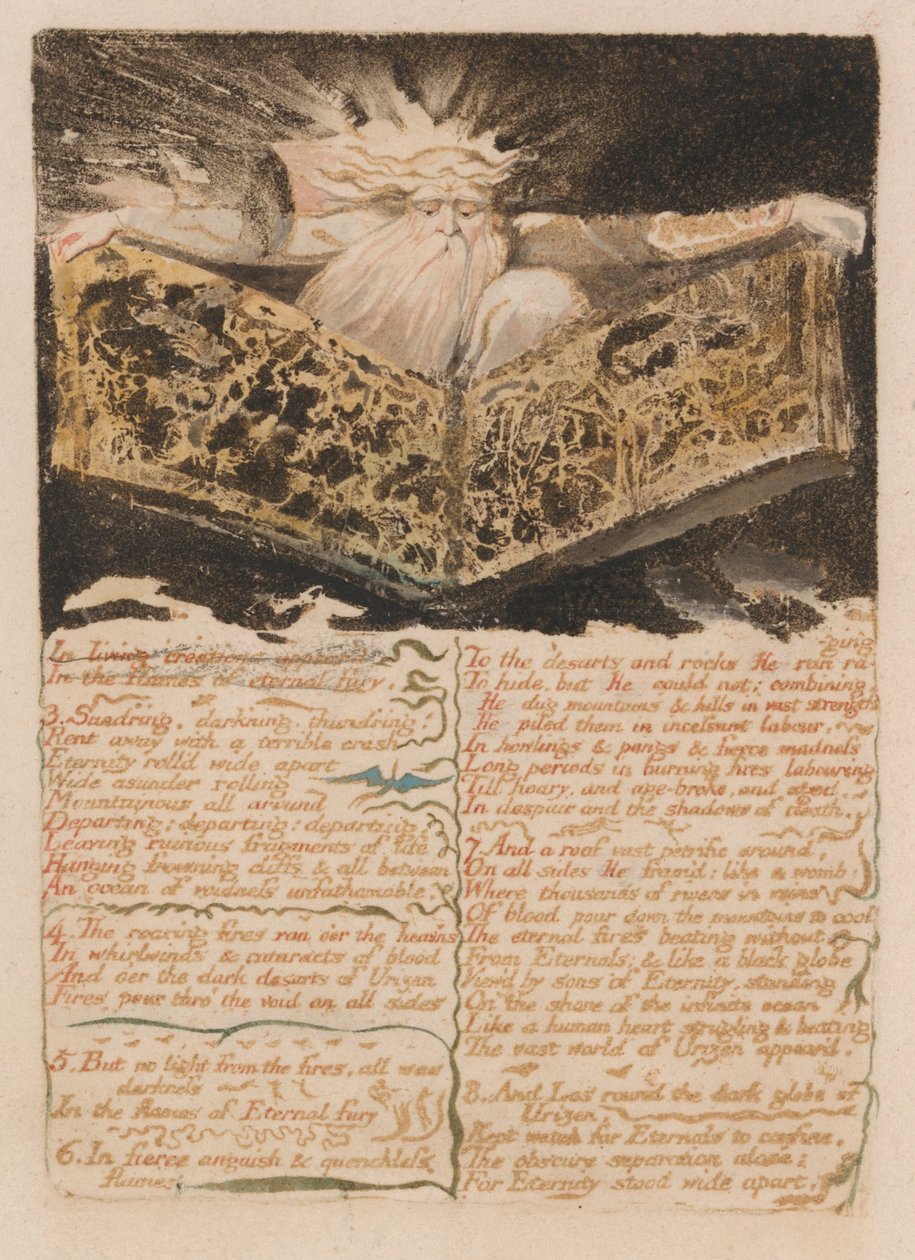 In living creations appear'd
In the flames of eternal fury.
3. Sundring, darkning, thundring!
Rent away with a terrible crash
Eternity roll'd wide apart
Wide asunder rolling
Mountainous all around
Departing; departing; departing:
Leaving ruinous fragments of life
Hanging frowning cliffs & all between
An ocean of voidneſs unfathomable.
4. The roaring fires ran o'er the heav'ns
In whirlwinds & cataracts of blood
And o'er the dark desarts of Urizen
Fires pour thro' the void on all sides
5. But no light from the fires, all was
darkneſs
In the flames of Eternal fury
6. In fierce anguish & quenchleſs
flames
ging
To the desarts and rocks He ran ra-
To hide, but He could not; combining
He dug mountains & hills in vast strength
He piled them in inceſsant labour,
In howlings & pangs & fierce madneſs
Long periods in burning fires labouring
Till hoary, and age-broke, and aged,
In despair and the shadows of death.
7. And a roof vast petrific around,
On all sides He fram'd: like a womb;
Where thousands of rivers in veins
Of blood pour down the mountains to cool
The eternal fires beating without
From Eternals; & like a black globe
View'd by sons of Eternity, standing
On the shore of the infinite ocean
Like a human heart strugling & beating
The vast world of Urizen appear'd.
8. And Los round the dark globe of
Urizen,
Kept watch for Eternals to confine,
The obscure separation alone;
For Eternity stood wide apart,